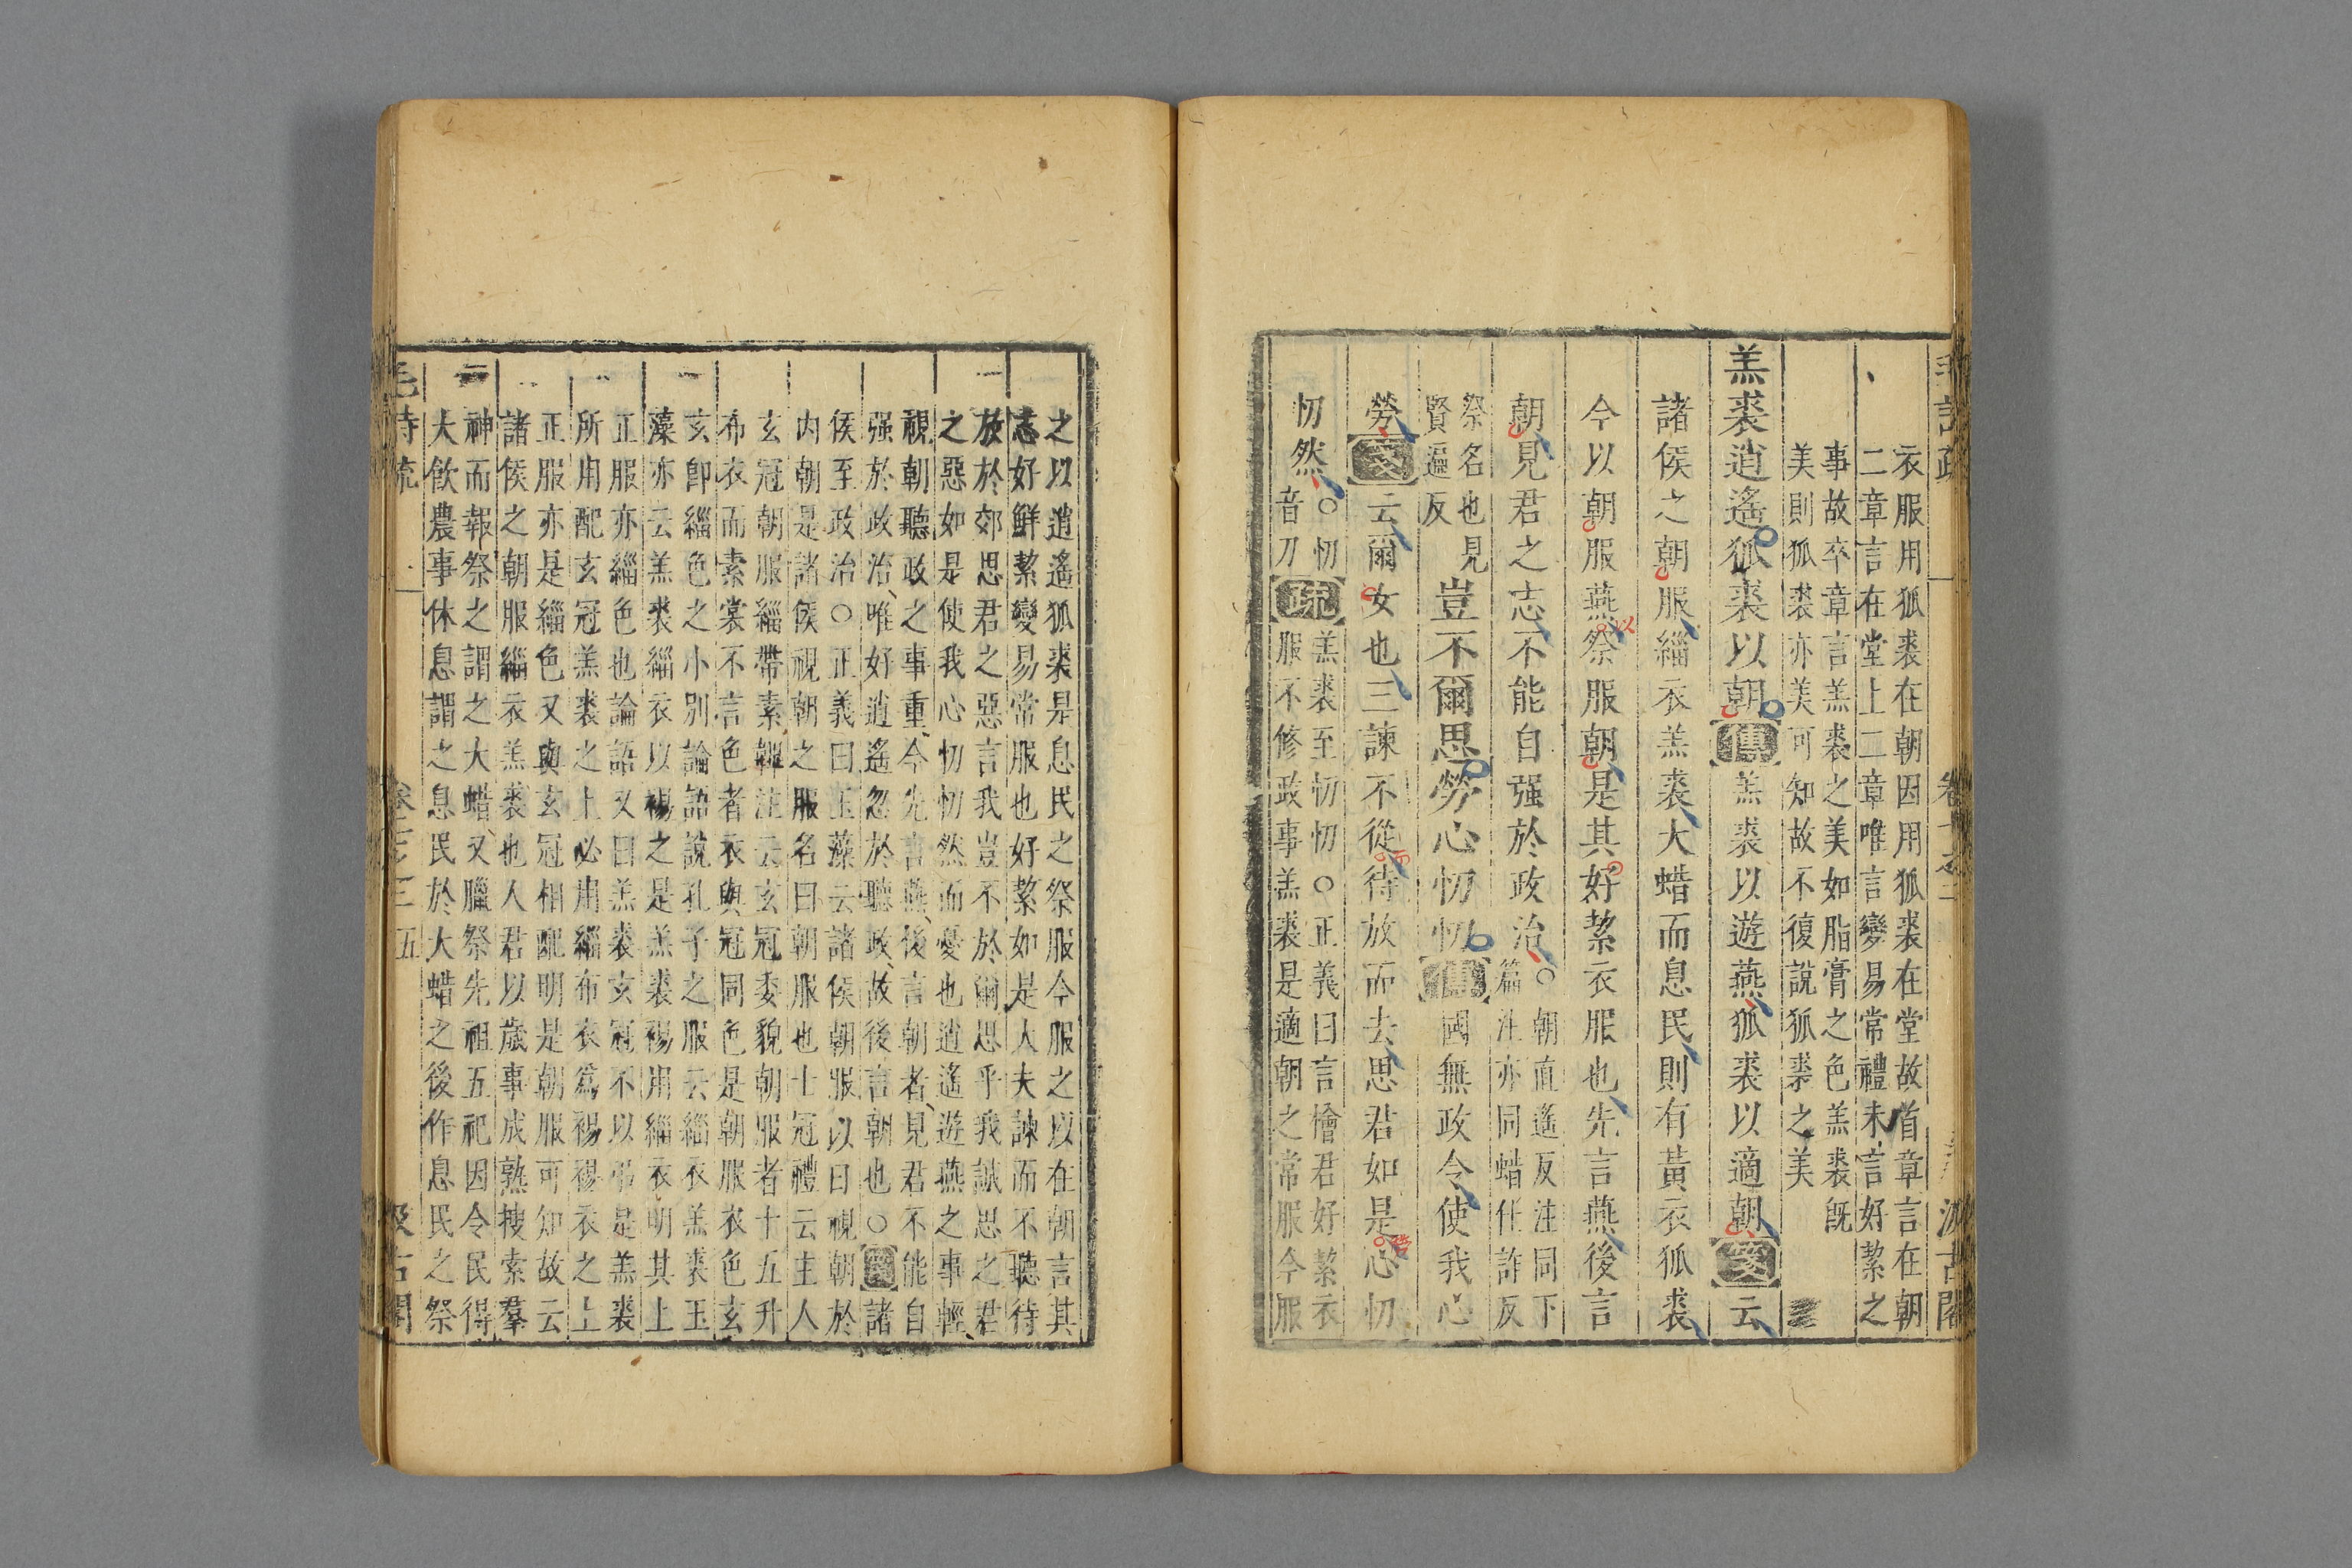 衣服用狐裘在朝因用狐裘在堂故首章言在朝
二章言在堂上二章唯言變易常禮未言好絜之
事故卒章言羔裘之美如脂膏之色羔裘旣
美則狐裘亦美可知故不復說狐裘之美
羔裘逍遙狐裘以朝傳羔裘以遊燕狐裘以適朝箋云
諸侯之朝服緇衣羔裘大蜡而息民則有黃衣狐裘
今以朝服燕祭服朝是其好絜衣服也先言燕後言
朝見君之志不能自强於政治○朝直遙反注同下
篇注亦同蜡仕詐反
祭名也見
賢遍反
豈不爾思勞心忉忉傳國無政令使我心
勞箋云爾女也三諫不從待放而去思君如是心忉
忉然○忉
音刀
疏羔裘至忉忉○正義曰言檜君好絜衣
服不修政事羔裘是適朝之常服今服
之以逍遙狐裘是息民之祭服今服之以在朝言其
志好鮮絜變易常服也好絜如是大夫諫而不聽待
放於郊思君之惡言我豈不於爾思乎我誠思之君
之惡如是使我心忉忉然而憂也逍遙遊燕之事輕
視朝聽政之事重今先言燕後言朝者見君不能自
强於政治唯好逍遙忽於聽政故後言朝也○箋諸
侯至政治○正義曰玉藻云諸侯朝服以日視朝於
内朝是諸侯視朝之服名曰朝服也士冠禮云主人
玄冠朝服緇帶素韠注云玄冠委貌朝服者十五升
布衣而素裳不言色者衣與冠同色是朝服衣色玄
玄卽緇色之小別論語說孔子之服云緇衣羔裘玉
藻亦云羔裘緇衣以裼之是羔裘裼用緇衣明其上
正服亦緇色也論語又曰羔裘玄冠不以弔是羔裘
所用配玄冠羔裘之上必用緇布衣爲裼裼衣之上
正服亦是緇色又與玄冠相配明是朝服可知故云
諸侯之朝服緇衣羔裘也人君以歲事成熟搜索羣
神而報祭之謂之大蜡又臘祭先祖五祀因令民得
大飮農事休息謂之息民於大蜡之後作息民之祭